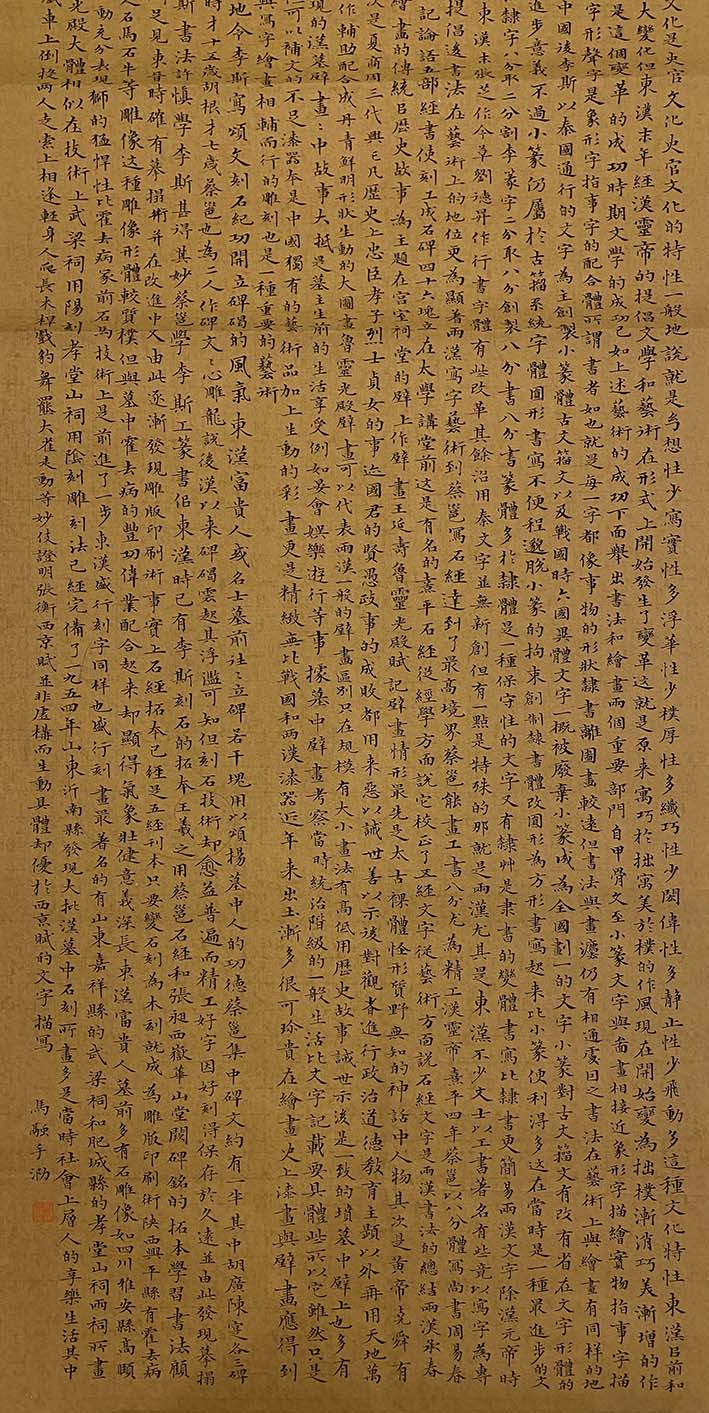 文化是史官文化史官文化的特性一般地說就是为想性少寫實性多浮華性少樸厚性多纖巧性少閎偉性多静止性少飛動多這種文化特性東漢臣前和
大變化但東漢末年經漢靈帝的提倡文學和藝術在形式上開始發生了變革这就是原来寓巧於拙寓美於樸的作風現在開始變為拙樸漸消巧美漸增的作
是這個變革的成功時期文學的成功已如上述藝術的成功下面舉出書法和繪畫兩個重要部門自甲骨文至小篆文字與畵畫相接近象形字描繪實物指事字描
字形聲字是象形字指事字的配合體所謂書者如也就是每一字都像事物的形狀隸書離圖畫較遠但書法與畫灋仍有相通處因之書法在藝術上與繪畫有同樣的地
中國後李斯以秦國通行的文字為主創製小篆體古文籀文以及戰國時六國異體文字一概被廢棄小篆成為全國劃一的文字小篆對古文籀文有改有省在文字形體的
進步意義不過小篆仍屬於古籀系統字體圓形書寫不便程邈脱小篆的拘束創制隸書體改圓形為方形書寫起来比小篆便利得多这在當時是一種最進步的文
隸字八分取二分割李篆字二分取八分創製八分書八分書篆體多於隸體是一種保守性的文字又有隸艸是隶書的變體書寫比隸書更簡易兩漢文字除漢元帝時
東漢末張芝作今草劉德昇作行書字體有些改革其餘沿用秦文字並無新創但有一點是特殊的那就是兩漢尤其是東漢不少文士以工書著名有些竞以寫字為專
提倡後書法在藝術上的地位更為顯著兩漢寫字藝術到蔡邕寫石經達到了最高境界蔡邕能畫工書八分尤為精工漢靈帝熹平四年蔡邕以八分體寫尚書周易春
記論語五部經書使刻工成石碑四十六塊立在太學講堂前这是有名的熹平石經從經學方面說它校正了五經文字從藝術方面說石經文字是兩漢書法的總結兩漢承春
繪畫的傳統臣歷史故事為主題在宫室祠堂的壁上作壁畫王延壽魯靈光殿賦記壁畫情形最先是太古裸體怪形質野無知的神話中人物其次是黄帝尧舜有
次是夏商周三代興亡凡歷史上忠臣孝子烈士貞女的事迹國君的賢愚政事的成敗都用来惡以誠世善以示後對觀者進行政治道德教育主題以外再用天地萬
作輔助配合成丹青鮮明形狀生動的大圖畫魯靈光殿壁畫可以代表兩漢一般的壁畫區别只在規模有大小畫法有高低用歷史故事誠世示後是一致的墳墓中壁上也多有
現的漢墓壁畫畫中故事大抵是墓主生前的生活享受例如宴會娛樂遊行等事據墓中壁畫考察當時統治階級的一般生活比文字記載要具體些所以它雖然只是
仁可以補文的不足漆器本是中國獨有的藝術品加上生動的彩畫更是精緻無比戰國和兩漢漆器近年来出土漸多很可珍貴在繪畫史上漆畫與壁畫應得到
與寫字繪畫相輔而行的雕刻也是一種重要的藝術
地令李斯寫頌文刻石紀功開立碑碣的風氣東漢富貴人或名士墓前往往立碑若干塊用以頌揚墓中人的功德蔡邕集中碑文約有一半其中胡廣陳寔各三碑
時才十五歲胡根才七歲蔡邕也為二人作碑文文心雕龍說後漢以来碑碣雲起其浮濫可知但刻石技術却愈益普遍而精工好字因好刻得保存於久遠並由此發現摹搨
斯書法許慎學李斯甚得其妙蔡邕學李斯工篆書但東漢時已有李斯刻石的拓本王羲之用蔡邕石經和張昶西嶽華山堂闕碑銘的拓本學習書法顧
足見東晋時確有摹搨術并在改進中又由此逐漸發現雕版印刷術事實上石經拓本已經是五經刊本只要變石刻為木刻就成為雕版印刷術陕西興平縣有霍去病
石人石馬石牛等雕像这種雕像形體較質樸但與墓中霍去病的豐功偉業配合起来却顯得氣象壯健意義深長東漢富貴人墓前多有石雕像如四川雅安縣高頤
動充分表現獅的猛悍性比霍去病冢前石馬技術上是前進了一步東漢盛行刻字同樣也盛行刻畫最著名的有山東嘉祥縣的武梁祠和肥城縣的孝堂山祠兩祠所畫
光殿大體相似在技術上武梁祠用陽刻孝堂山祠用陰刻雕刻法已經完備了一九五四年山東沂南縣發現大批漢墓中石刻所畫多是當時社會上層人的享樂生活其中
戲車上倒投兩人走索上相逢軽身人爬長木桿戲豹舞罷大雀走動等妙伎證明張衡西京賦並非虚構而生動具體却優於西京賦的文字描寫
馬融手泐